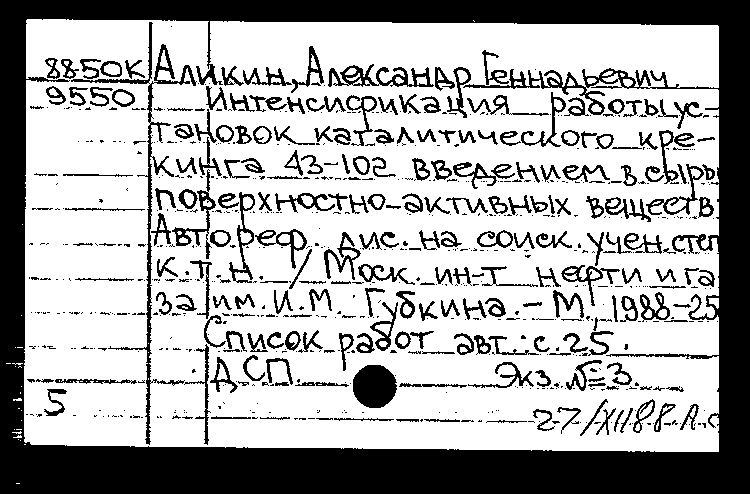 8850К Аликин, Александр Геннадьевич.
9550 Интенсификация работы ус-
тановок каталитического кре-
кинга 43-102 введением в сырь
поверхностно-активных веществ
Автореф. дис. на соиск. учен. степ
к.т.н. / Моск. ин-т нефти и га
за им. И.М. Губкина. - М., 1988-25
Список работ авт.: с. 25.
ДСП. Экз. №3.
5
27/XII88.